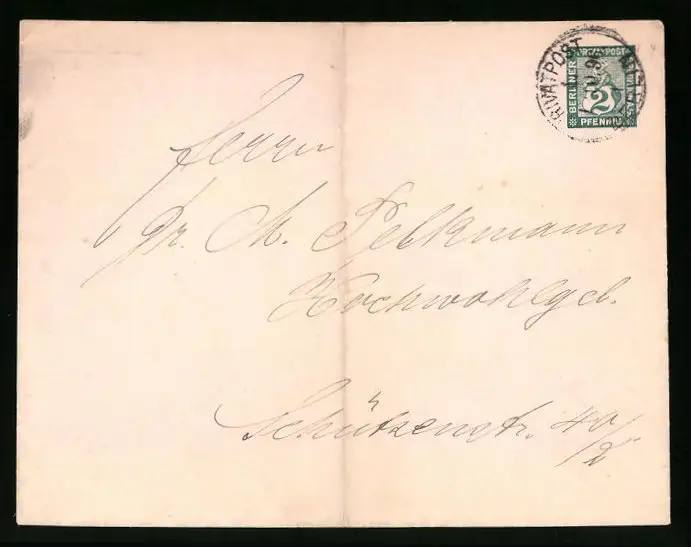 PRIVATPOST
BERLINER PRIVATPOST
2
PFENNIG
Herrn
Dr. M. Pelkmann
Hochwohlgeb.
Schützenstr. 40/2